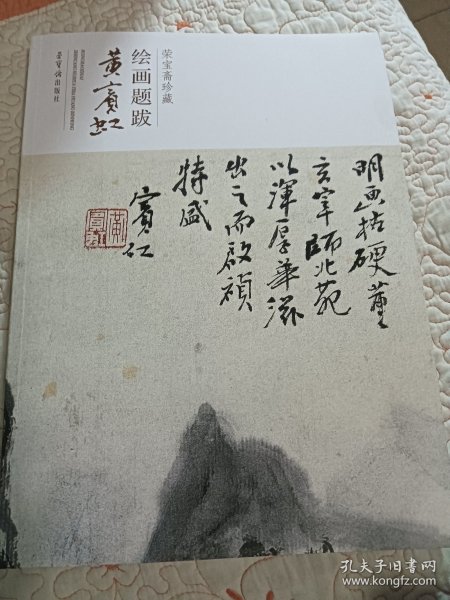 荣宝斋珍藏
绘画题跋
黄宾虹
荣宝斋出版社
明画枯硬董
玄宰师北苑
以浑厚华滋
出之而启祯
特盛
宾虹
孔夫子旧书网
www.kongfz.com